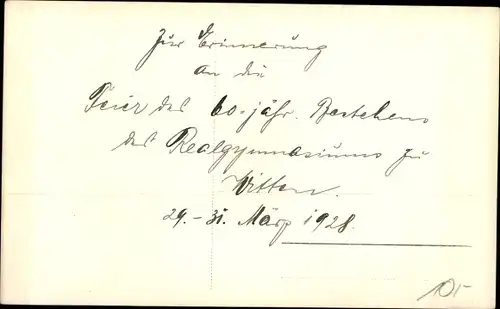 Zur Erinnerung
an die
Feier des 60-jähr. Bestehens
des Realgymnasiums zu
Witten.
29. - 31. März 1928.
10,-